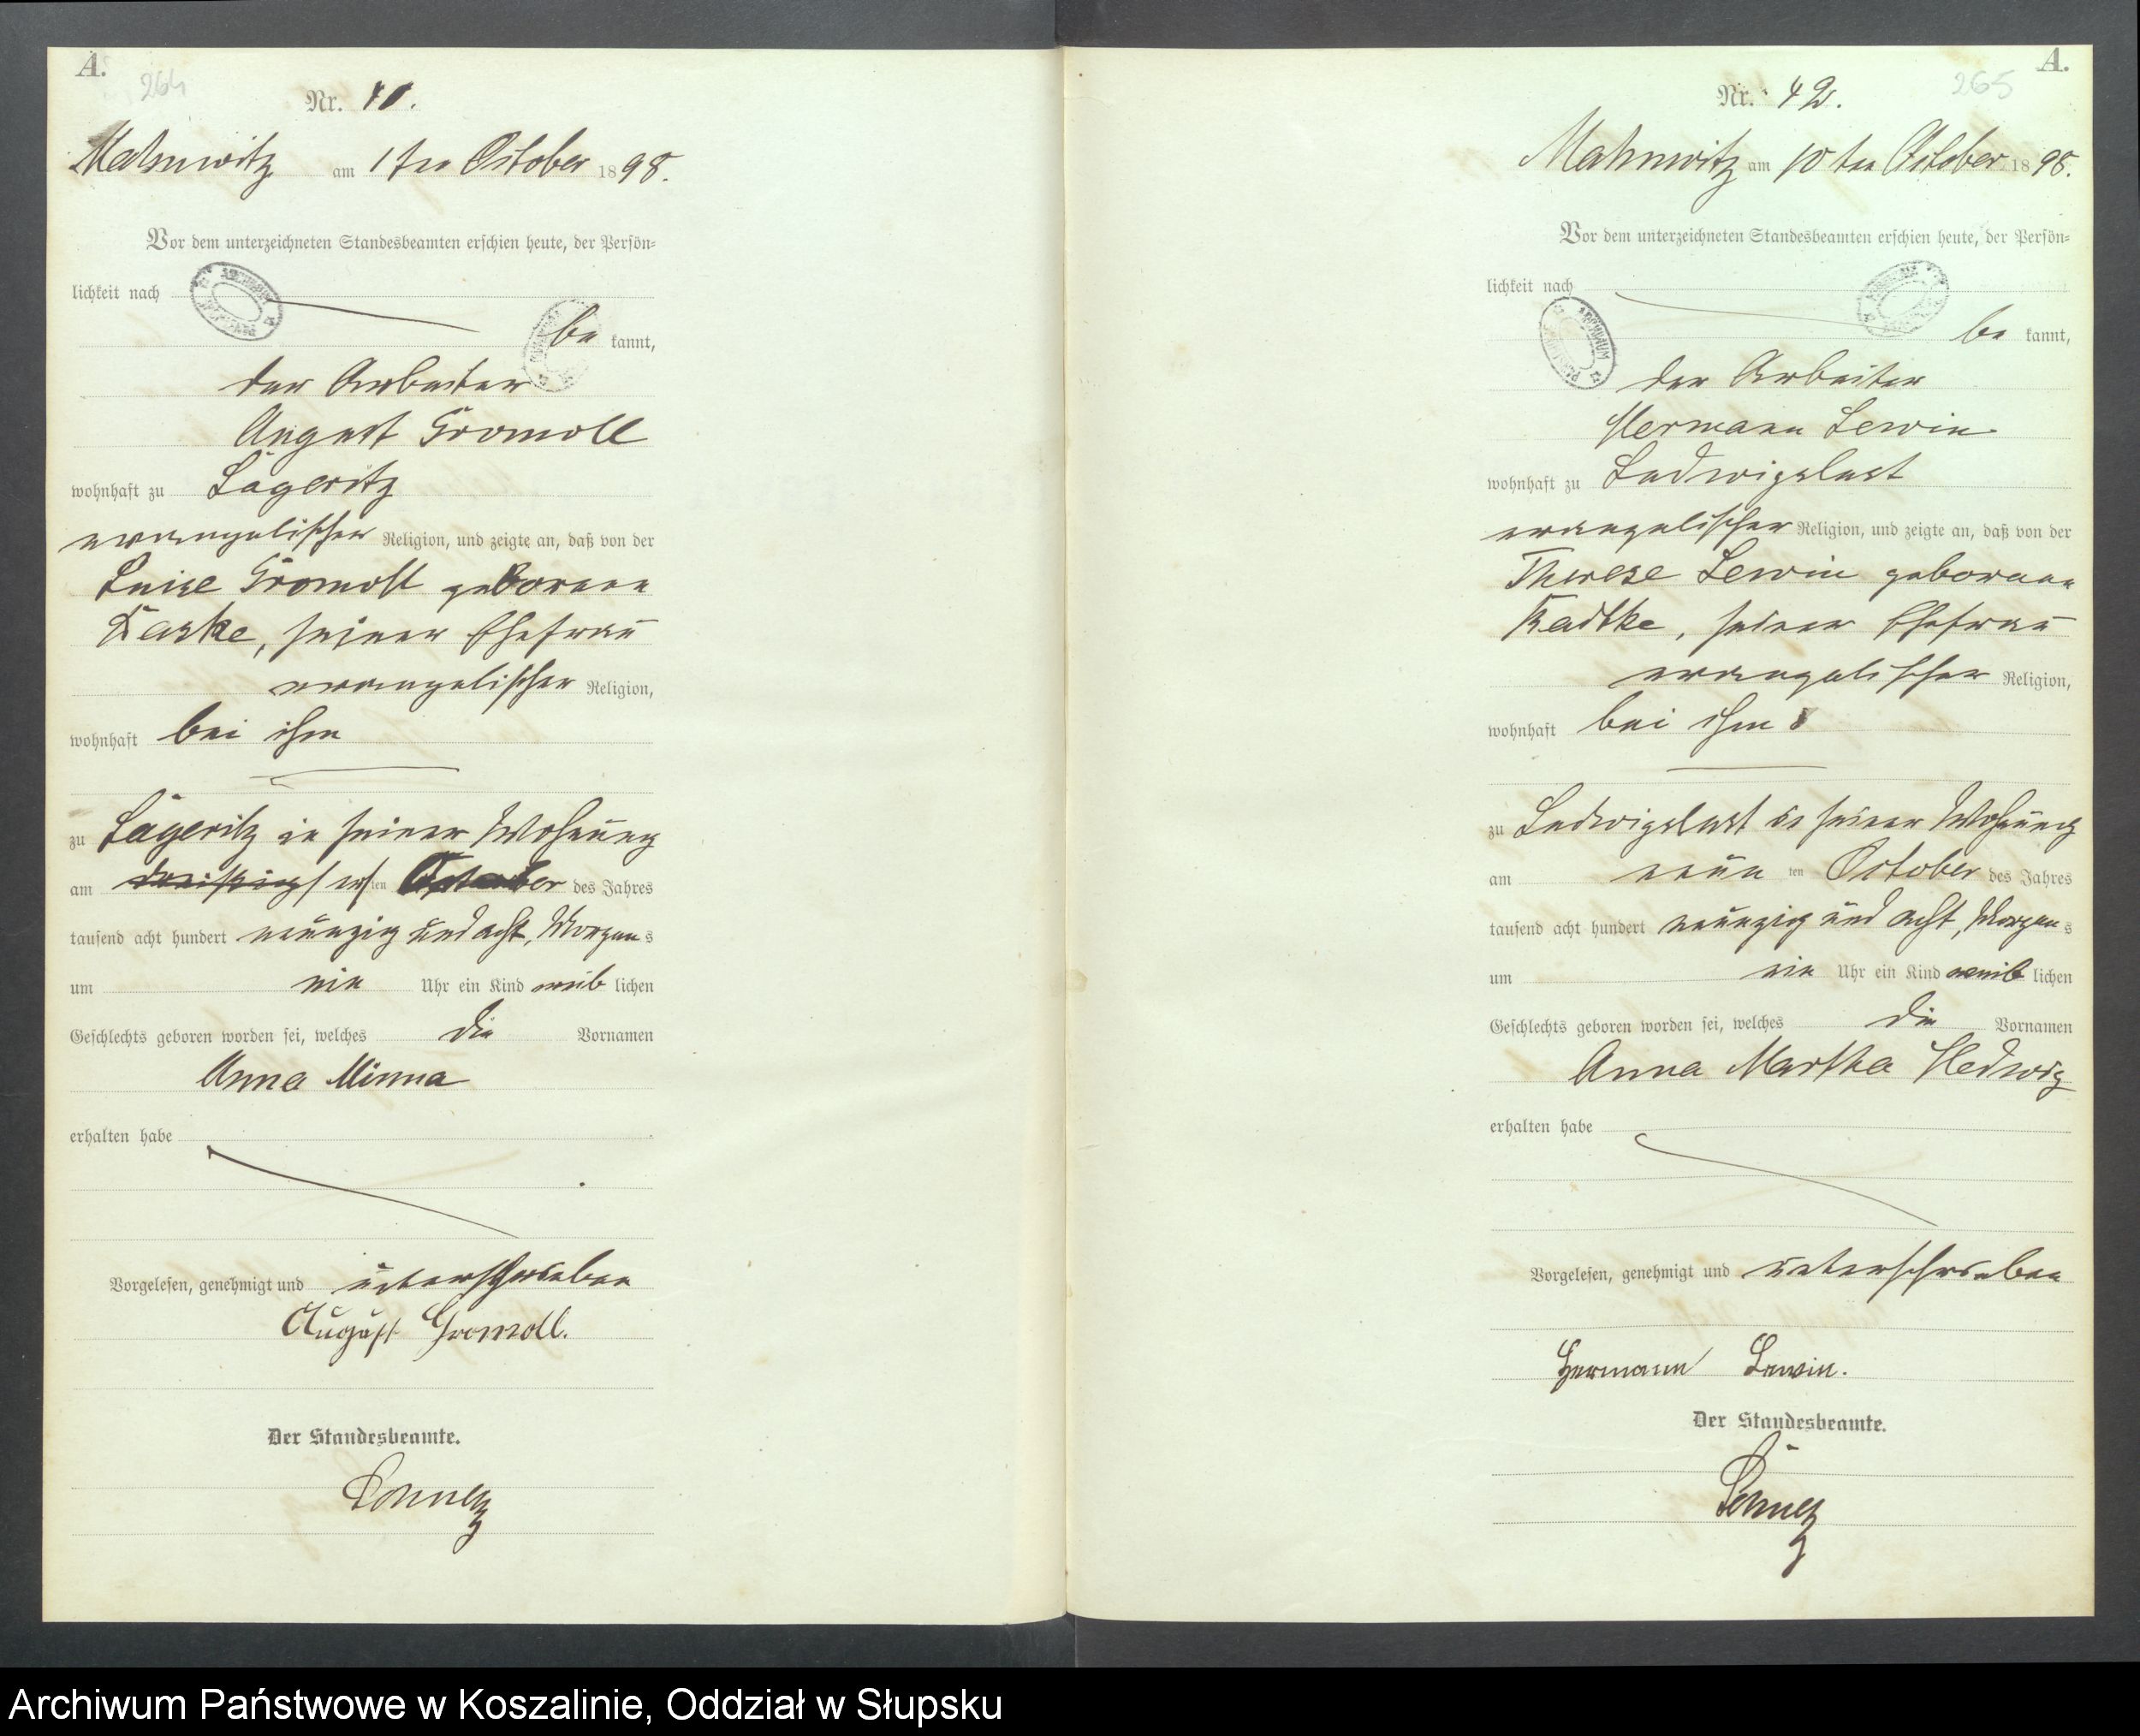 A.
264
Nr. 41.
Mahnwitz am 1ten October 1898.
Vor dem unterzeichneten Standesbeamten erschien heute, der Persön-
lichkeit nach
be kannt,
der Arbeiter
August Gromoll
wohnhaft zu Lageritz
evangelischer Religion, und zeigte an, daß von der
Luise Gromoll geborene
Kaske, seiner Ehefrau
evangelischer Religion,
wohnhaft bei ihm
zu Lageritz in seiner Wohnung
am ersten October des Jahres
tausend acht hundert neunzig und acht, Morgens
um ein Uhr ein Kind weiblichen
Geschlechts geboren worden sei, welches die Vornamen
Anna Minna
erhalten habe
Vorgelesen, genehmigt und unterschrieben
August Gromoll.
Der Standesbeamte.
A.
265
Nr. 42.
Mahnwitz am 10ten October 1898.
Vor dem unterzeichneten Standesbeamten erschien heute, der Persön-
lichkeit nach
be kannt,
der Arbeiter
Hermann Lewin
wohnhaft zu Ludwigslust
evangelischer Religion, und zeigte an, daß von der
Therese Lewin geborene
Radtke, seiner Ehefrau
evangelischer Religion,
wohnhaft bei ihm
zu Ludwigslust in seiner Wohnung
am neun ten October des Jahres
tausend acht hundert neunzig und acht, Morgens
um ein Uhr ein Kind weiblichen
Geschlechts geboren worden sei, welches die Vornamen
Anna Martha Hedwig
erhalten habe
Vorgelesen, genehmigt und unterschrieben
Hermann Lewin.
Der Standesbeamte.
Archiwum Państwowe w Koszalinie, Oddział w Słupsku